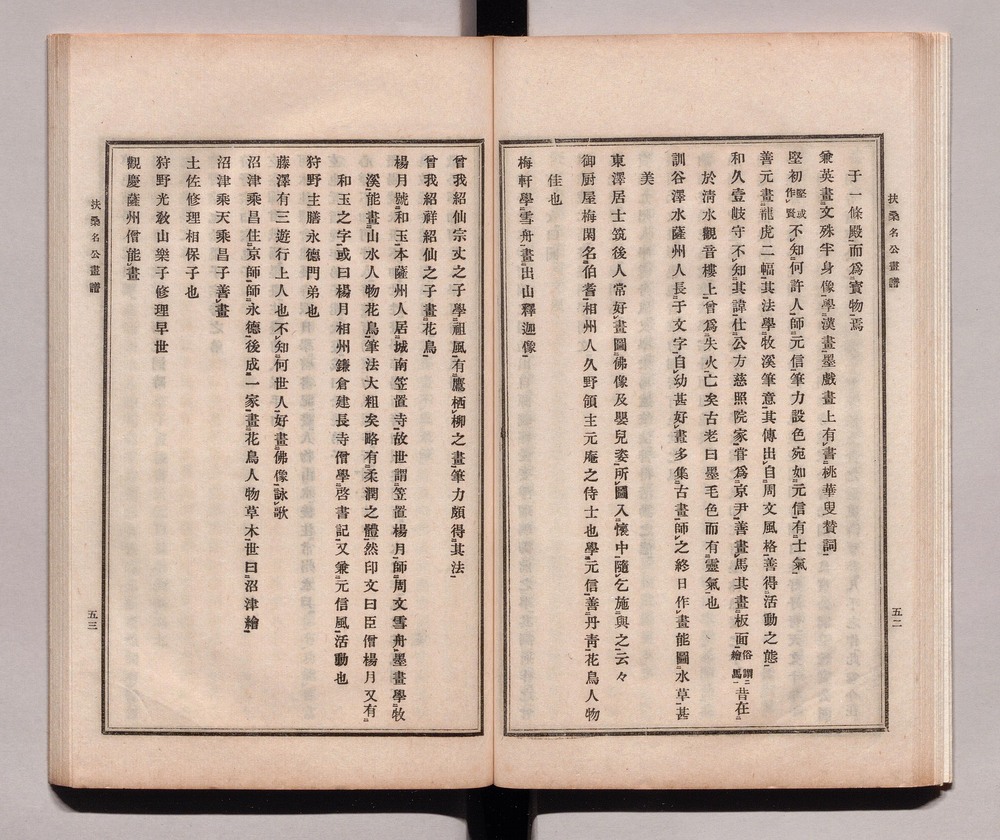 扶桑名公畫譜
五二
于一條殿而爲寶物焉
兼英畫文殊半身像學漢畫墨戲畫上有書桃華叟賛詞
堅初堅或作賢不知何許人師元信筆力設色宛如元信有士氣
善元畫龍虎二幅其法學牧溪筆意其傳出自周文風格善得活動之態
和久壹岐守不知其諱仕公方慈照院家嘗爲京尹善畫馬其畫板面俗謂繪馬昔在
於淸水觀音樓上曾爲失火亡矣古老曰墨毛色而有靈氣也
訓谷澤水薩州人長于文字自幼甚好畫多集古畫師之終日作畫能圖水草甚
美
東澤居士筑後人常好畫圖佛像及嬰兒委所圖入懷中隨乞施與之云々
御厨屋梅閑名伯耆相州人久野領主元庵之侍士也學元信善丹靑花鳥人物
佳也
梅軒學雪舟畫出山釋迦像
曾我紹仙宗丈之子學祖風有鷹栖柳之畫筆力頗得其法
曾我紹祥紹仙之子畫花鳥
楊月號和玉本薩州人居城南笠置寺故世謂笠置楊月師周文雪舟墨畫學牧
溪能畫山水人物花鳥筆法大粗矣略有柔潤之體然印文曰臣僧楊月又有
和玉之字或曰楊月相州鎌倉建長寺僧學啓書記又兼元信風活動也
狩野主膳永德門弟也
藤澤有三遊行上人也不知何世人好畫佛像詠歌
沼津乘昌住京師師永德後成一家畫花鳥人物草木世曰沼津繪
沼津乘天乘昌子善畫
土佐修理相保子也
狩野光敎山樂子修理早世
觀慶薩州僧能畫
扶桑名公畫譜
五三